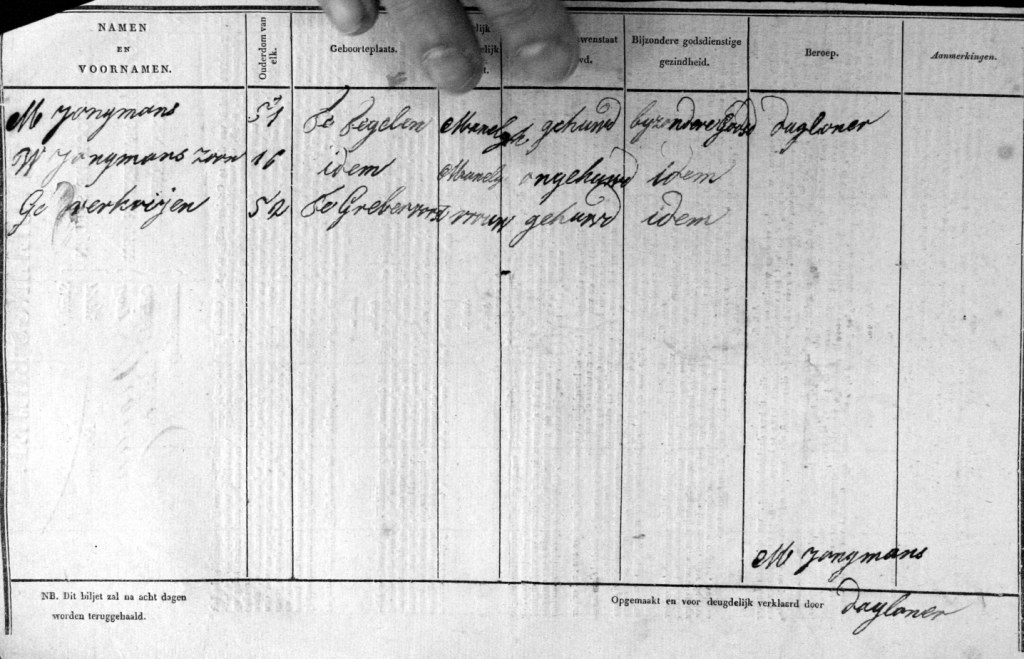 NAMEN EN VOORNAMEN. Onderdom van elk. Geboorteplaats. Bijzondere godsdienstige gezindheid. Beroep. Aanmerkingen.
M Jongmans 51 Te Tegelen Manelyk gehuwd byzondere Godsd dagloner
W Jongmans zoon 16 idem Manely ongehuwd idem
Ge verkoijen 52 Te vrouw gehuwd idem
M Jongmans
NB. Dit biljet zal na acht dagen worden teruggehaald.
Opgemaakt en voor deugdelijk verklaard door dagloner